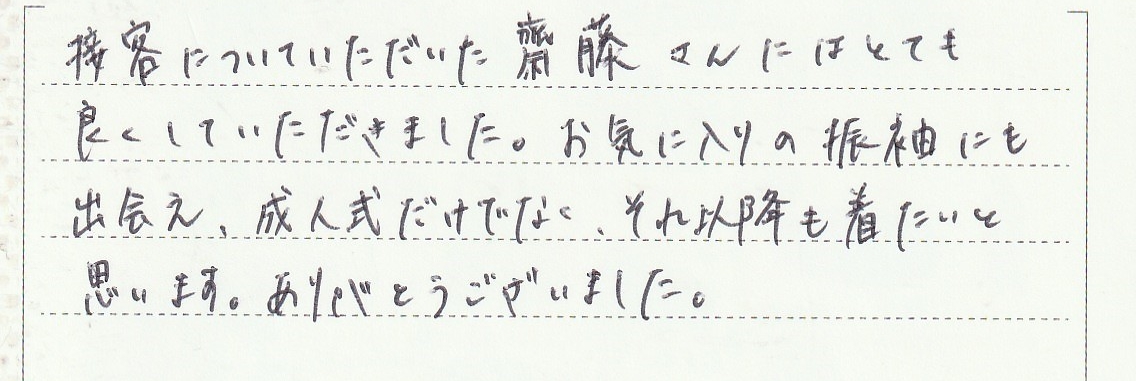 接客についていただいた齋藤さんにはとても
良くしていただきました。お気に入りの振袖にも
出会え、成人式だけでなく、それ以降も着たいと
思います。ありがとうございました。